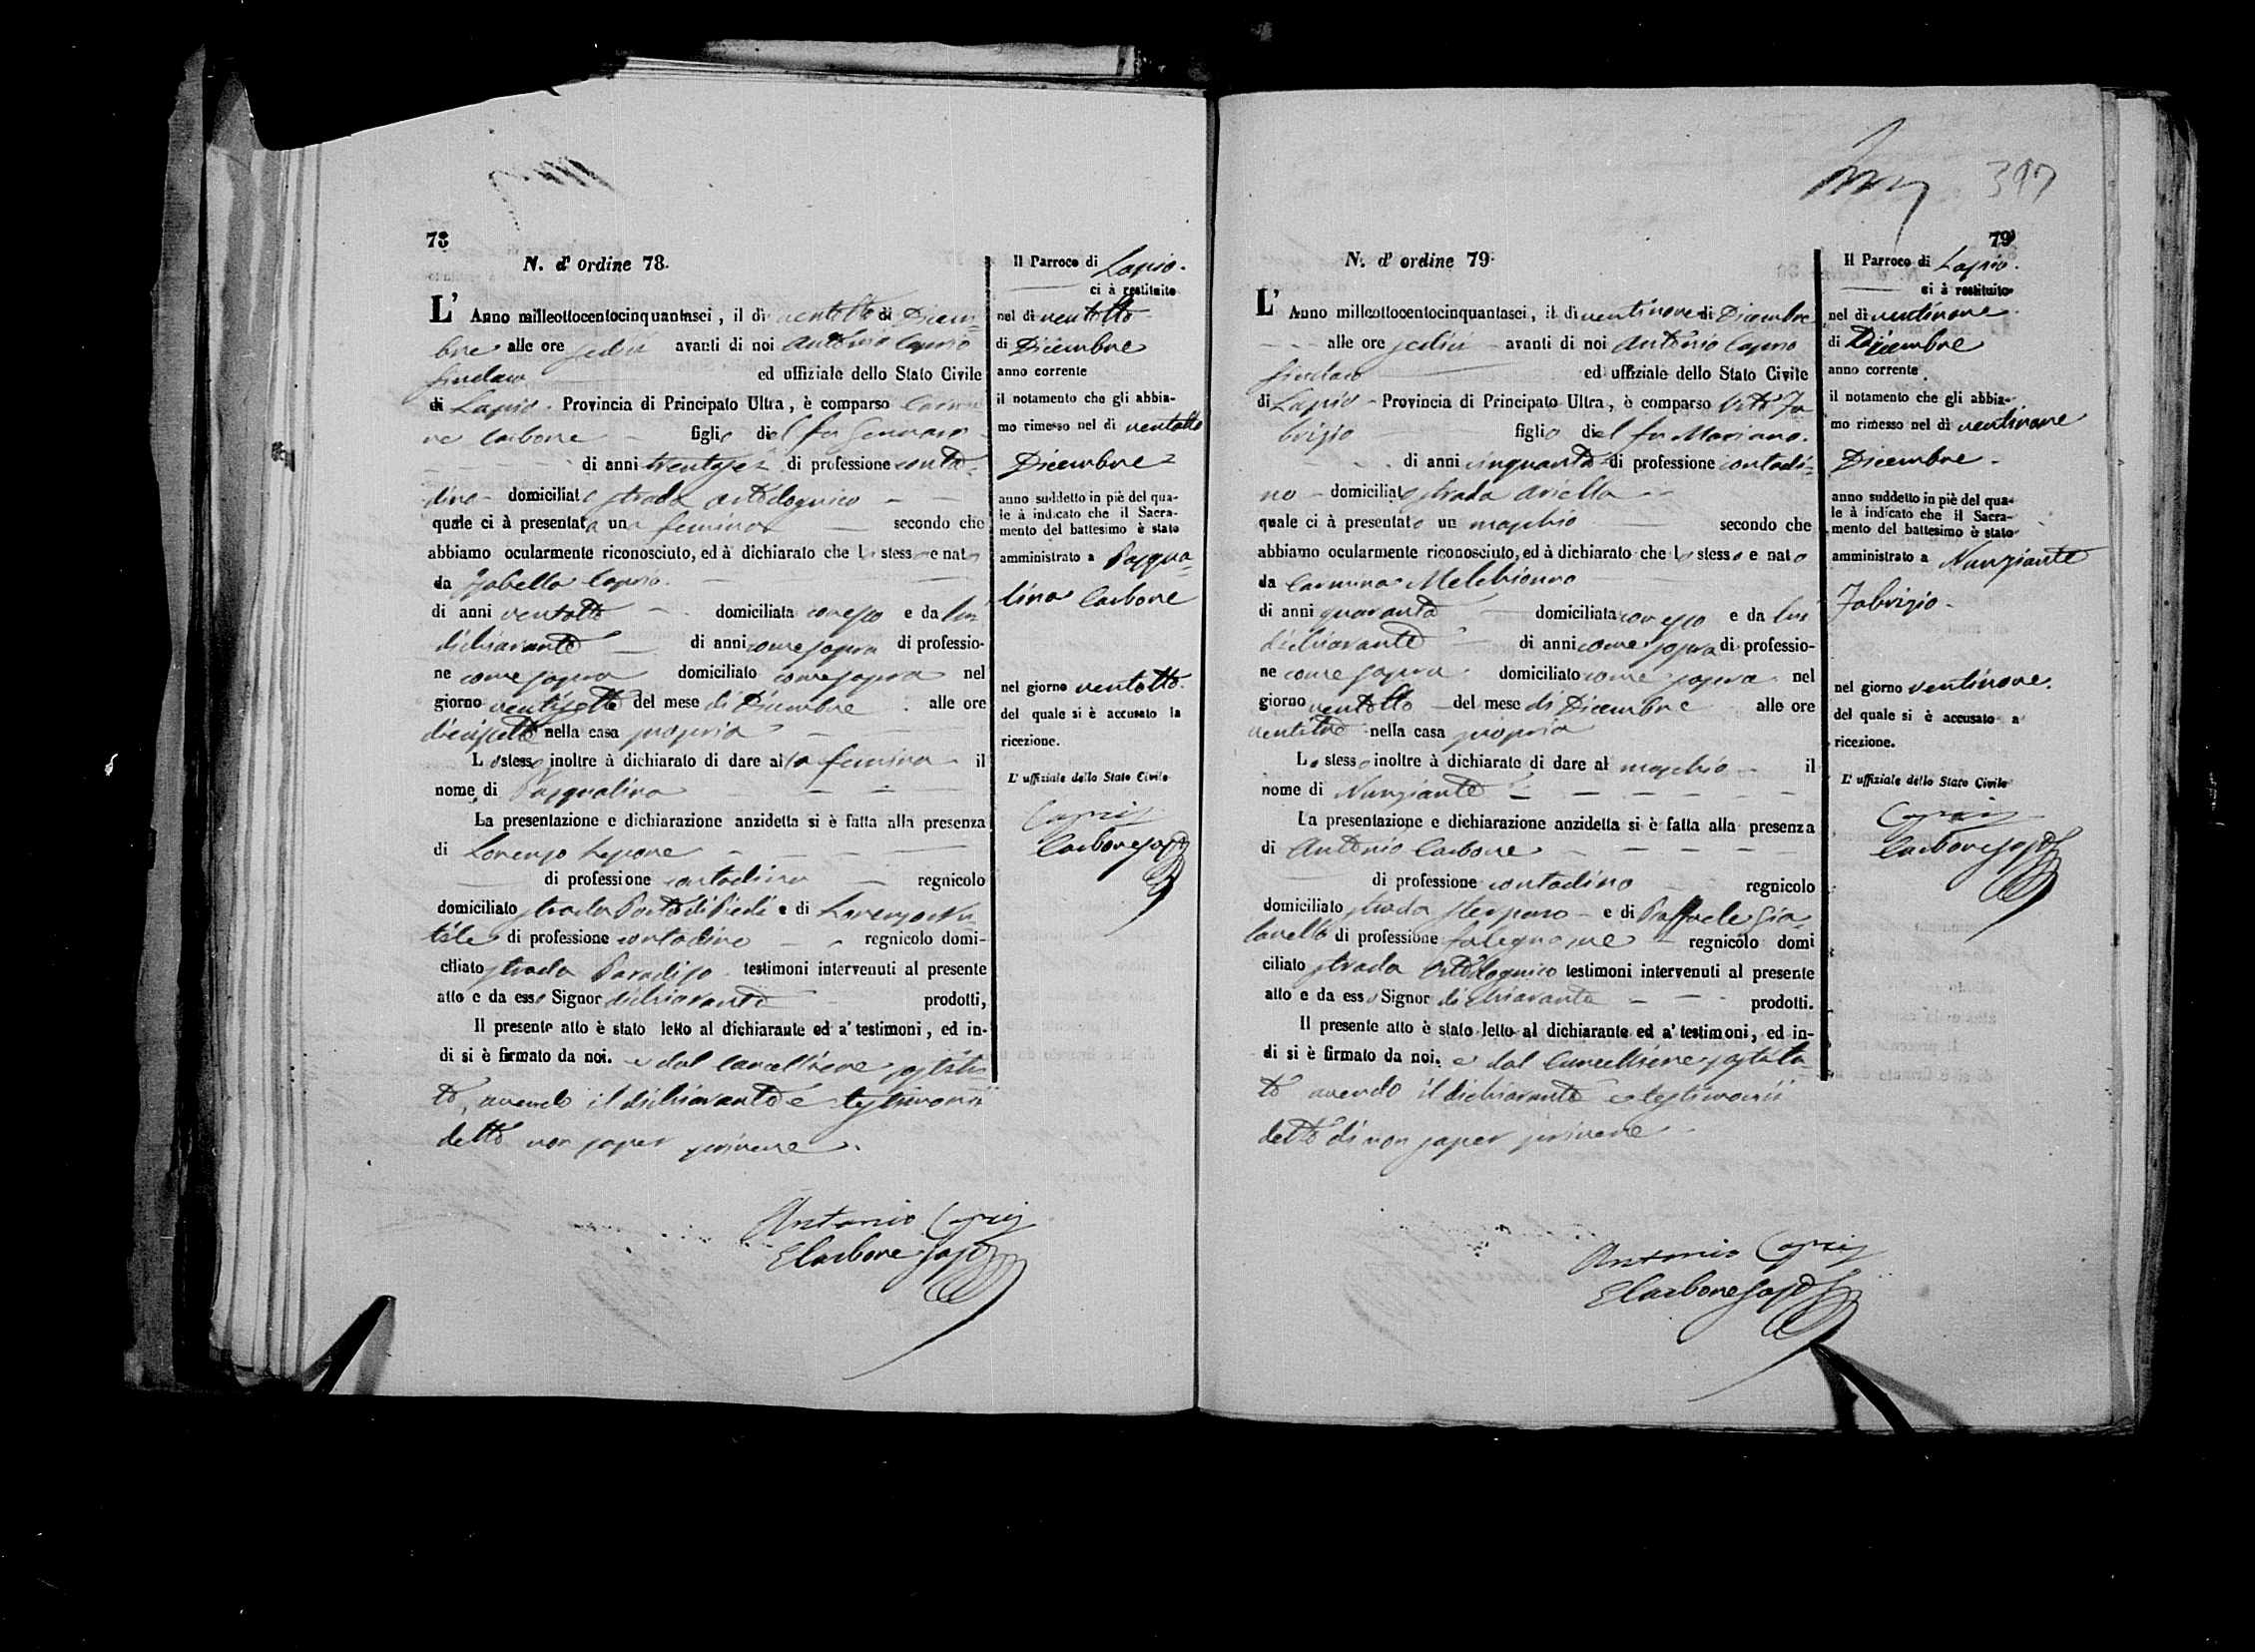 397
78
N. d' ordine 78.
L' Anno milleottocentocinquantasei, il dì ventotto di Dicem-
bre alle ore sedici avanti di noi Antonio Caprio
Sindaco ed uffiziale dello Stato Civile
di Lapio. Provincia di Principato Ultra, è comparso Carmi-
ne Carbone figlio del fu Gennaro
di anni trentasei di professione conta-
dino domiciliato strada
quale ci à presentata una femina secondo che
abbiamo ocularmente riconosciuto, ed à dichiarato che la stessa e nata
da Isabella Caprio
di anni ventotto domiciliata con esso e da lui
dichiarante di anni come sopra di professio-
ne come sopra domiciliato come sopra nel
giorno ventisette del mese di Dicembre alle ore
diciasette nella casa propria
Lo stesso inoltre à dichiarato di dare alla femina il
nome di Pasqualina
La presentazione e dichiarazione anzidetta si è fatta alla presenza
di Lorenzo Lepore
di professione contadino regnicolo
domiciliato strada e di Lorenzo
di professione contadino regnicolo domi-
ciliato strada Paradiso testimoni intervenuti al presente
atto e da esso Signor dichiarante prodotti,
Il presente atto è stato letto al dichiarante ed a' testimoni, ed in-
di si è firmato da noi. e dal Cancelliere sostitu-
to, avendo il dichiarante e testimonii
detto non saper scrivere.
Antonio Caprio
E Carbone Sosto
Il Parroco di Lapio.
ci à restituito
nel dì ventotto
di Dicembre
anno corrente
il notamento che gli abbia-
mo rimesso nel dì ventotto
Dicembre
anno suddetto in piè del qua-
le à indicato che il Sacra-
mento del battesimo è stato
amministrato a Pasqua-
lina Carbone
nel giorno ventotto.
del quale si è accusato la
ricezione.
L' uffiziale dello Stato Civile
Caprio
Carbone Sosto
79
N. d' ordine 79.
L' Anno milleottocentocinquantasei, il dì ventinove di Dicembre
alle ore sedici avanti di noi Antonio Caprio
Sindaco ed uffiziale dello Stato Civile
di Lapio Provincia di Principato Ultra, è comparso Vito Fa
brizio figlio del fu Mariano.
di anni cinquanta di professione contadi-
no domiciliato strada Ariella
quale ci à presentato un maschio secondo che
abbiamo ocularmente riconosciuto, ed à dichiarato che lo stesso e nato
da Carmina Melchionno
di anni quaranta domiciliata con esso e da lui
dichiarante di anni come sopra di professio-
ne come sopra domiciliato come sopra nel
giorno ventotto del mese di Dicembre alle ore
ventitre nella casa propria
Lo stesso inoltre à dichiarato di dare al maschio il
nome di Nunziante
La presentazione e dichiarazione anzidetta si è fatta alla presenza
di Antonio Carbone
di professione contadino regnicolo
domiciliato strada e di Raffaele Cia-
di professione falegname regnicolo domi
ciliato strada testimoni intervenuti al presente
atto e da esso Signor dichiarante prodotti.
Il presente atto è stato letto al dichiarante ed a' testimoni, ed in-
di si è firmato da noi. e dal Cancelliere sostitu-
to avendo il dichiarante e testimonii
detto di non saper scrivere
Antonio Caprio
E Carbone Sosto
Il Parroco di Lapio.
ci à restituito
nel dì ventinove.
di Dicembre
anno corrente
il notamento che gli abbia-
mo rimesso nel dì ventinove
Dicembre
anno suddetto in piè del qua-
le à indicato che il Sacra-
mento del battesimo è stato
amministrato a Nunziante
Fabrizio
nel giorno ventinove.
del quale si è accusato a
ricezione.
L' uffiziale dello Stato Civile
Caprio
Carbone Sosto